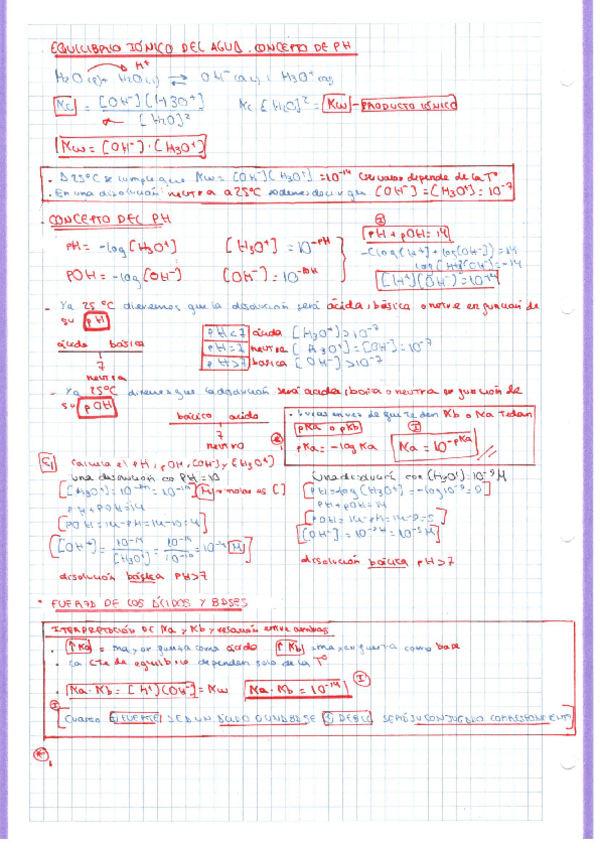 EQUILIBRIO IÓNICO DEL AGUA. CONCEPTO DE PH
H+
H2O (l) + H2O (l) ⇄ OH- (aq) + H3O+ (aq)
Kc = [OH-][H3O+] / [H2O]2 Kc [H2O]2 = Kw - PRODUCTO IÓNICO
Kw = [OH-]·[H3O+]
· A 25°C se cumple que Kw = [OH-][H3O+] = 10-14 depende de la Tª
· En una disolución neutra a 25°C podemos decir que [OH-] = [H3O+] = 10-7
· CONCEPTO DEL PH
pH + pOH = 14
pH = -log[H3O+] [H3O+] = 10-pH
-(log[H+] + log[OH-]) = 14
log[H+][OH-] = -14
POH = -log[OH-] [OH-] = 10-POH
[H+][OH-] = 10-14
- Ya 25 °C diremos que la disolución será ácida, básica o neutra en función de
su pH
ácida básica
7
neutra
pH<7 ácida [H3O+] > 10-7
pH=7 neutra [H3O+] = [OH-] = 10-7
pH>7 básica [OH-] > 10-7
- Ya 25°C diremos que la disolución será ácida, básica o neutra en función de
su pOH
básico ácido
7
neutro
· en vez de que te den Kb o Ka te dan
pKa o pKb
pKa = -log Ka Ka = 10-pKa
Calcula el pH, pOH, [OH-] y [H3O+]
una disolución con PH=10
[H3O+] = 10-PH = 10-10 M
PH + POH = 14
POH = 14-PH = 14-10 = 4
[OH-] = 10-14 / [H3O+] = 10-14 / 10-10 = 10-4 M
disolución básica PH>7
Una disolución con [H3O+] = 10-9 M
pH = -log[H3O+] = -log 10-9 = 9
PH + POH = 14
POH = 14-PH = 14-9 = 5
[OH-] = 10-POH = 10-5 M
disolución básica pH>7
· FUERZA DE LOS ÁCIDOS Y BASES
INTERPRETACIÓN DE Ka y Kb y relación entre ambas
· ↑Ka = mayor fuerza como ácido ↑Kb = mayor fuerza como base
· La cte de equilibrio dependen solo de la Tª
· Ka·Kb = [H+][OH-] = Kw Ka·Kb = 10-14
Cuanto FUERTE SEA UN ÁCIDO O UNA BASE DÉBIL SERÁ SU CONJUGADO CORRESPONDIENTE